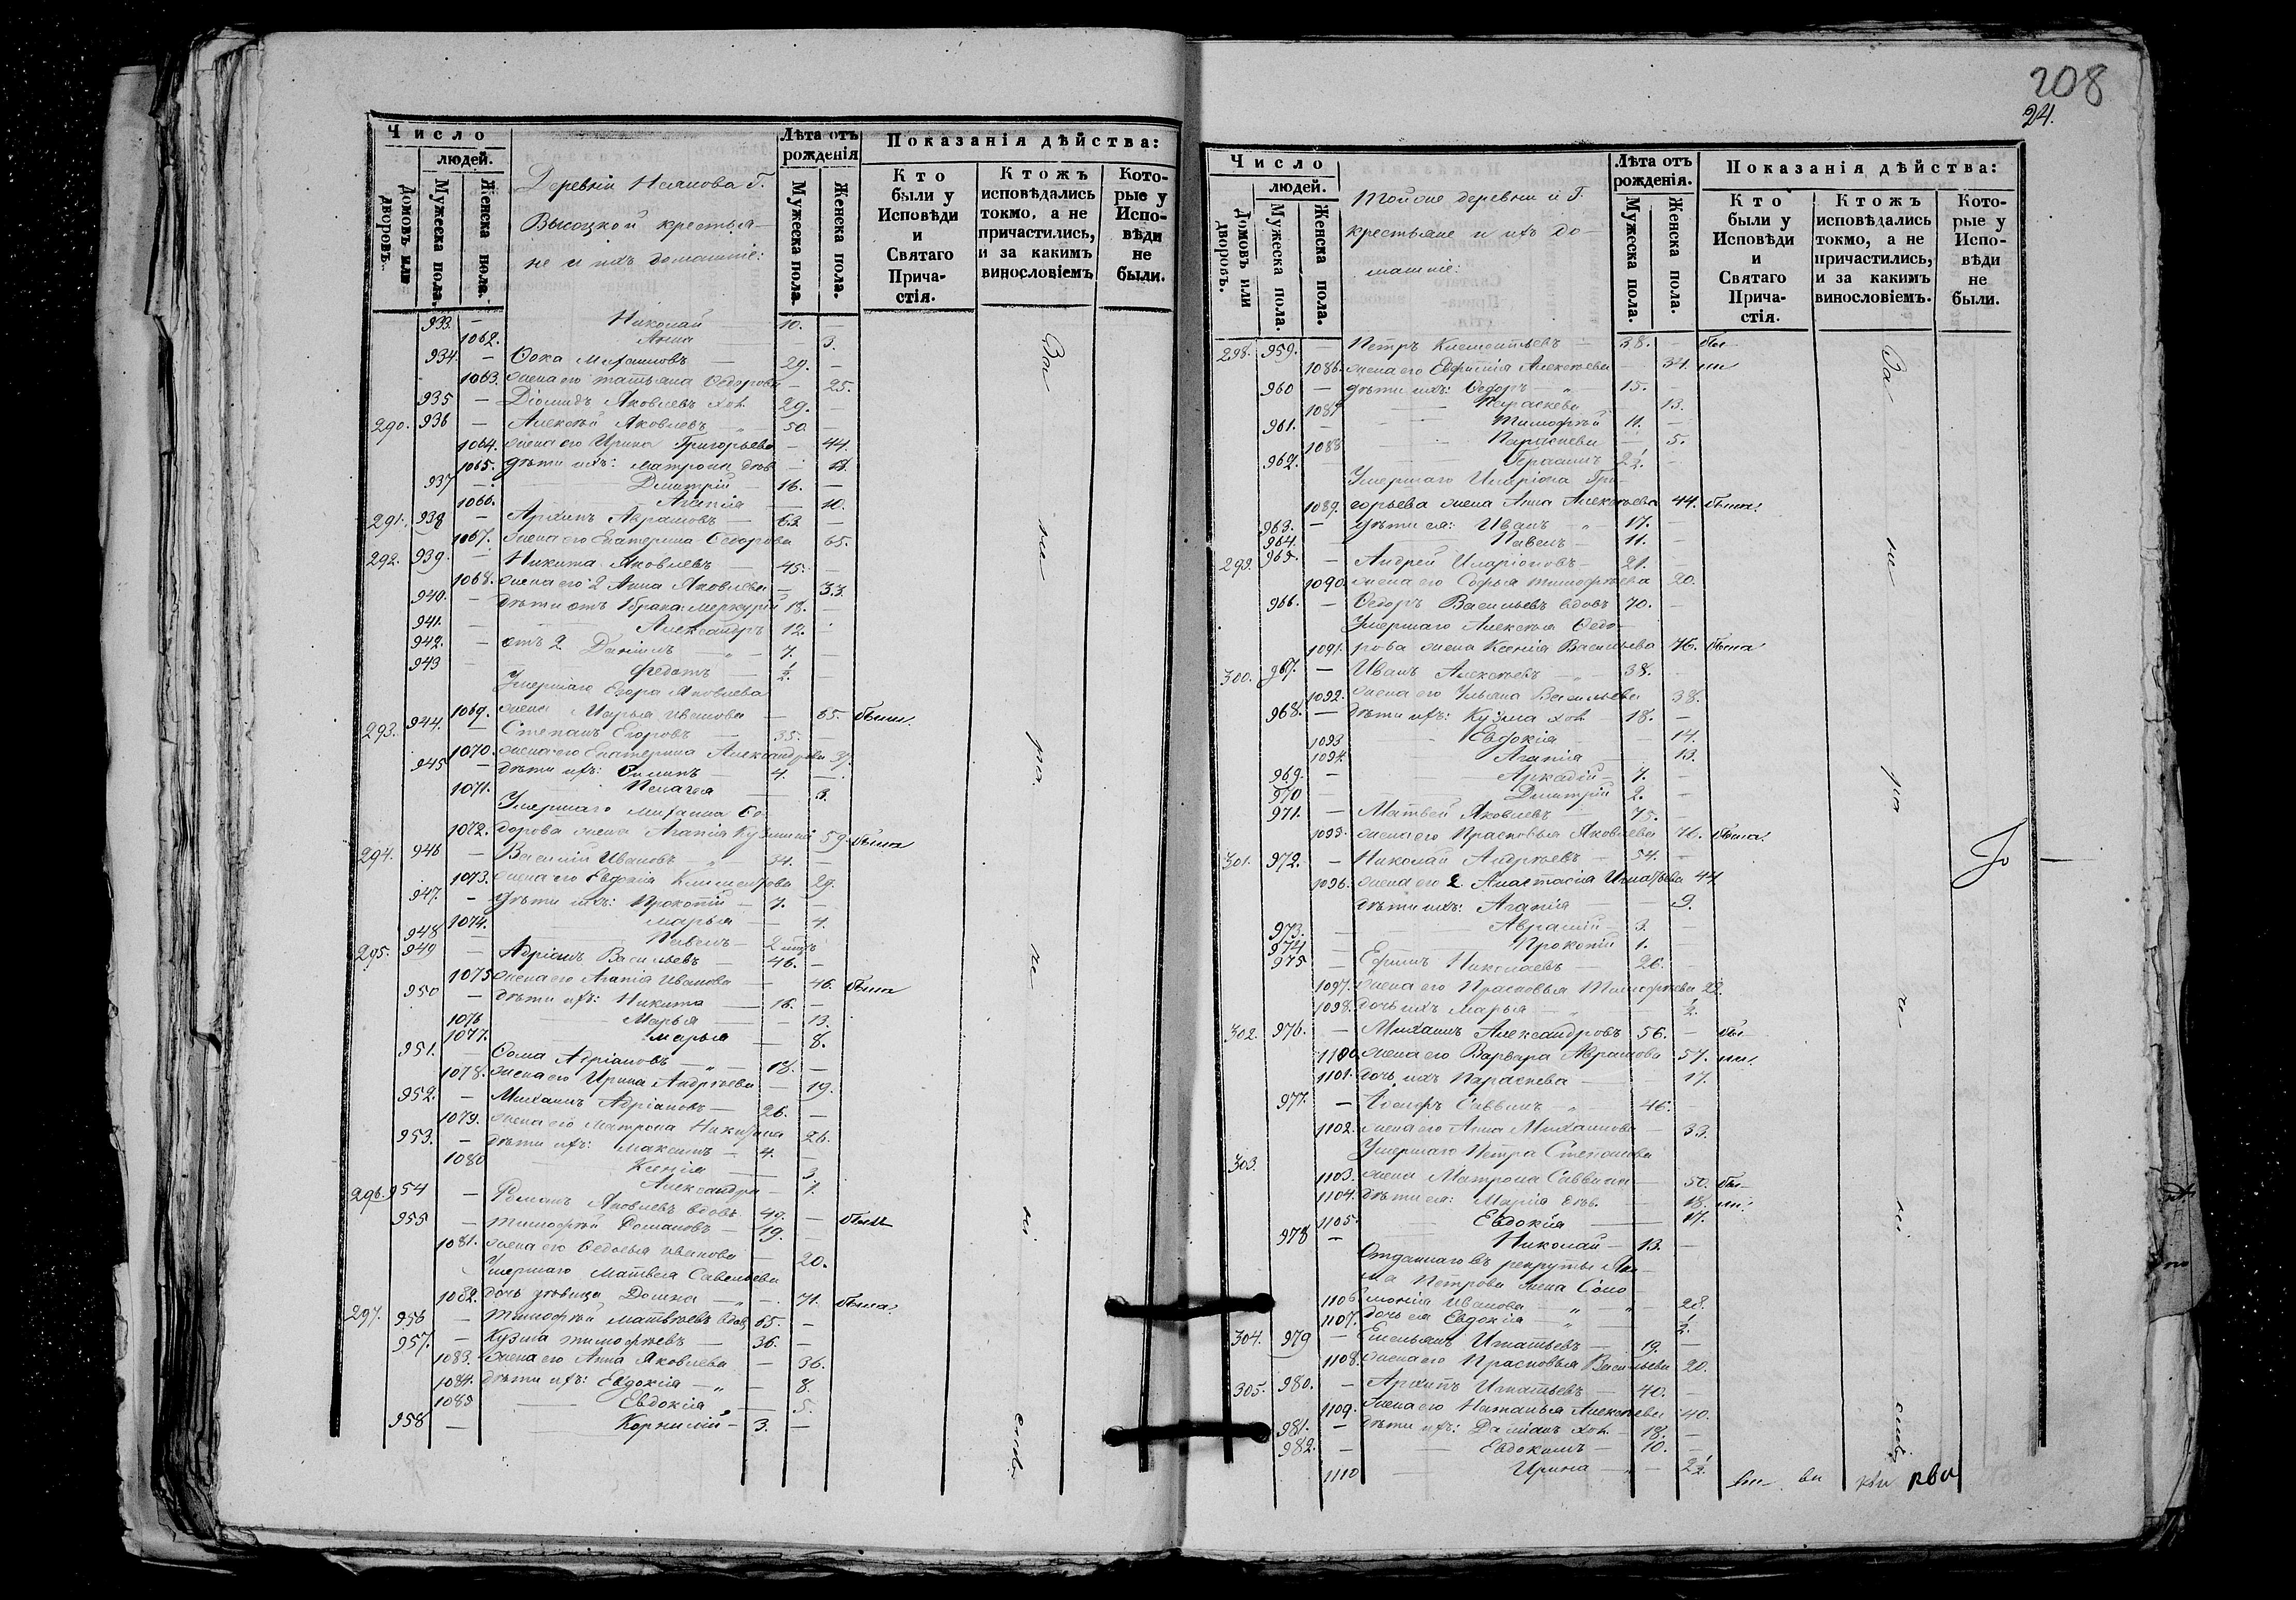 Число
людей.
Домовъ или дворовъ.
Мужеска пола.
Женска пола.
Деревни Г.
Высоцкой крестья-
не и ихъ домашніе:
Лѣта отъ рожденія
Мужеска пола.
Женска пола.
Показанія дѣйства:
Кто были у Исповѣди и Святаго Прича-стія.
Ктожъ исповѣдались токмо, а не причастились, и за какимъ винословіемъ
Кото-рые у Испо-вѣди не были.
933. — Николай — 10. —
1062. Анна — 3.
934. — Фока Михайловъ — 29. —
1063. жена его Татьяна Ѳедорова — 25.
935 — Діомидъ Яковлевъ хол. 29. —
290. 936 — Алексѣй Яковлевъ 50 —
1064. жена его Ирина Григорьева — 44.
1065. дѣти ихъ: Матрона дѣв. —
937 — Дмитрій — 16. —
1066. Агапія — 10.
291. 938 — Архипъ Абрамовъ — 63. —
1067. жена его Екатерина Ѳедорова 65.
292. 939. — Никита Яковлевъ — 45. —
1068. жена его 2 Анна Яковлева — 33.
940. — дѣти отъ 1 брака: Меркурій 18. —
941. — Александръ 12. —
942. — отъ 2 Даніилъ — 7. —
943 — Федотъ — ½. —
Умершаго Егора Яковлева
1069. жена Марья Иванова — 65. была.
293. 944. — Степанъ Егоровъ — 35. —
1070. жена его Екатерина Александрова 37.
945 — дѣти ихъ: Филипъ — 4. —
1071. Пелагея — 3.
Умершаго Михаила Ѳе-
1072. дорова жена Агапія Кузьмина 59. была
294. 946 — Василій Ивановъ — 34. —
1073. жена его Евдокія Климентова 29.
947. — дѣти ихъ: Прокопій — 7. —
1074. Марья — 4.
948 — Павелъ — 2
295. 949 — Адріанъ Васильевъ — 46. —
1075 жена его Агапія Иванова — 46. была
950 — дѣти ихъ: Никита — 16. —
1076 Марья — 13.
1077. Марья — 8.
951. — Фома Адріановъ — 18. —
1078. жена его Ирина Андреева — 19.
952. — Михаилъ Адріановъ — 26. —
1079. жена его Матрона Никитина 26.
953. — дѣти ихъ: Максимъ — 4. —
1080 Ксенія — 3.
Александра — 1.
296. 954 — Романъ Яковлевъ вдовъ 49. —
955 — Тимофей Романовъ — 19. — были
1081. жена его Ѳедосья Иванова — 20.
Умершаго Матвея Савельева
1082. дочь дѣвица Домна — 71. была.
297. 956 — Тимофей Матвѣевъ вдов. 65. —
957. — Кузма Тимофѣевъ — 36. —
1083. жена его Анна Яковлева — 36.
1084. дѣти ихъ: Евдокія — 8.
1085 Евдокія — 5.
958 — Корнилій — 3. —
За
не
208
24.
Число
людей.
Домовъ или дворовъ.
Мужеска пола.
Женска пола.
Тойже деревни и Г.
крестьяне и ихъ до-
машніе:
Лѣта отъ рожденія.
Мужеска пола.
Женска пола.
Показанія дѣйства:
Кто были у Исповѣди и Святаго Прича-стія.
Ктожъ исповѣдались токмо, а не причастились, и за какимъ винословіемъ.
Кото-рые у Испо-вѣди не были.
298. 959. — Петръ Климентьевъ — 38. — бы-
1086. жена его Евфимія Алексѣева 34. ли
960 — дѣти ихъ: Ѳедоръ — 15. —
1087 Параскева 13.
961. — Тимофей 11. —
1088 Параскева — 5.
962. — Герасимъ 2½. —
Умершаго Иларіона Гри-
1089. горьева жена Анна Алексѣева 44. была.
963. — дѣти ея: Иванъ — 17. —
964. — Павелъ — 11. —
299. 965. — Андрей Иларіоновъ — 21. —
1090. жена его Софья Тимофѣева 20.
966. — Ѳедоръ Васильевъ вдовъ 70. —
Умершаго Алексѣя Ѳедо-
1091. рова жена Ксенія Васильева 76. была
300. 967. — Иванъ Алексѣевъ — 38. —
1092. жена его Ульяна Васильева 38.
968. — дѣти ихъ: Кузма хол. 18. —
1093 Евдокія — 14.
1094 Агапія — 13.
969. — Аркадій — 7. —
970 — Дмитрій 2. —
971. — Матвей Яковлевъ — 75. —
1095. жена его Прасковья Яковлева 70. была.
301. 972. — Николай Андрѣевъ — 54. —
1096. жена его 2 Анастасія Игнатьева 44
дѣти ихъ: Агапія — 9.
973. — Аврамій 3. —
974 — Прокопій 1. —
975 — Ефимъ Николаевъ — 26. —
1097. жена его Прасковья Тимофѣева 22.
1098. дочь ихъ Марья — ½.
302. 976. — Михаилъ Александровъ 56. — бы-
1100. жена его Варвара Абрамова 57. ли.
1101. дочь ихъ Параскева — 17.
977. — Саввинъ — 46. —
1102. жена его Анна Михайлова — 33.
303. Умершаго Петра Степанова
1103. жена Матрона Саввина — 50. бы-
1104. дѣти ея: Марія дѣв. — 18. ли.
1105. Евдокія — 17.
978 — Николай — 13. —
Отданнаго въ рекруты
Петрова жена Соло-
1106 монія Иванова — 28.
1107. дочь ея Евдокія — ½.
304. 979 — Емельянъ Игнатьевъ — 19. —
1108. жена его Прасковья Васильева 20.
305. 980. — Архипъ Игнатьевъ — 40. —
1109. жена его Наталья Алексѣева 40.
981. — дѣти ихъ: Даміанъ хол. 18. —
982. — Евдокимъ — 10. —
1110 Ирина — 2½.
За
не